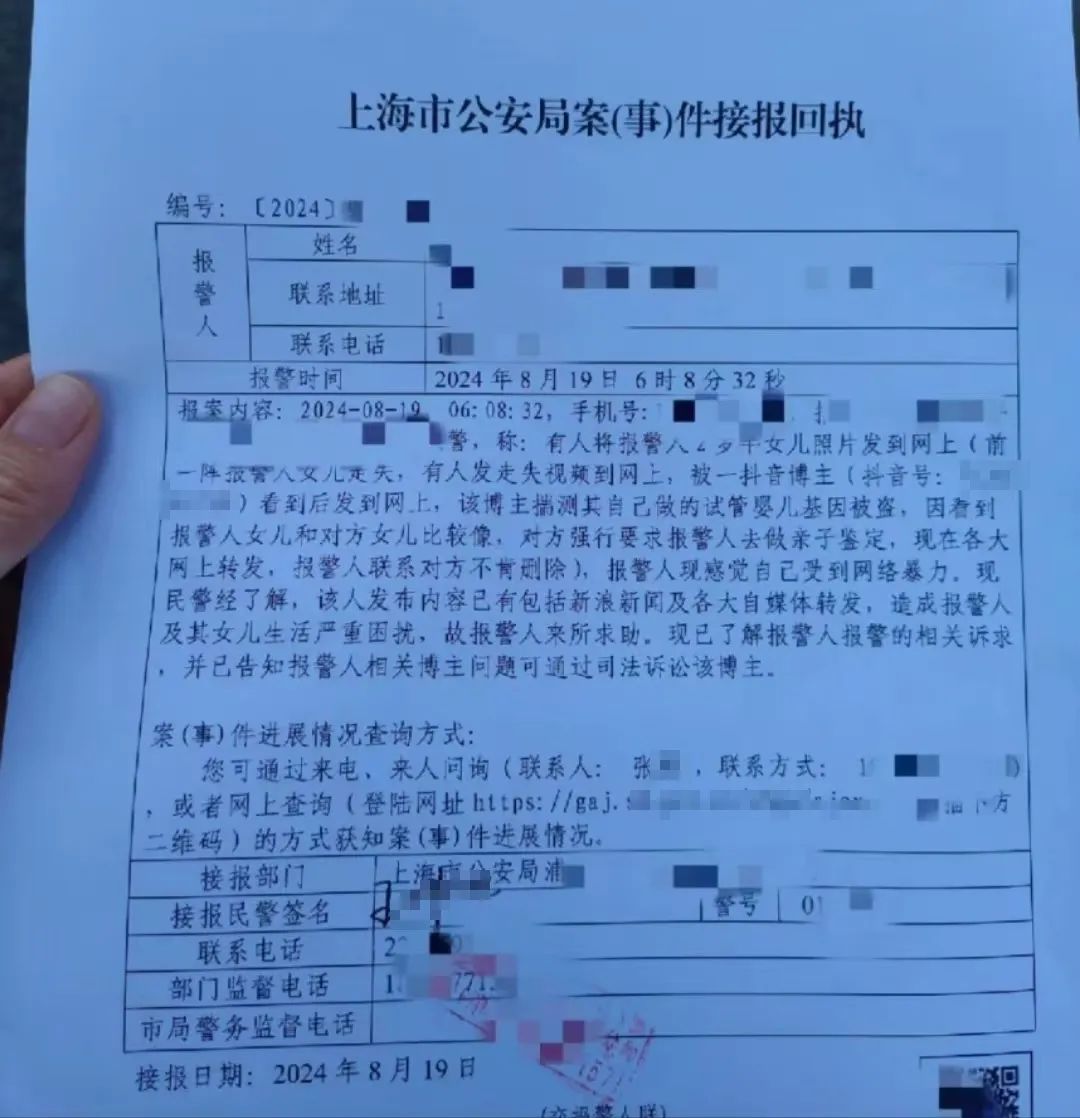 上海市公安局案(事)件接报回执
编号: 〔2024〕
报警人
姓名
联系地址
1
联系电话
1
报警时间
2024 年 8 月 19 日 6 时 8 分 32 秒
报案内容: 2024-08-19 06:08:32, 手机号:
警, 称: 有人将报警人 2 岁半女儿照片发到网上 (前
一阵报警人女儿走失, 有人发走失视频到网上, 被一抖音博主 (抖音号:
) 看到后发到网上, 该博主揣测其自己做的试管婴儿基因被盗, 因看到
报警人女儿和对方女儿比较像, 对方强行要求报警人去做亲子鉴定, 现在各大
网上转发, 报警人联系对方不肯删除), 报警人现感觉自己受到网络暴力. 现
民警经了解, 该人发布内容已有包括新浪新闻及各大自媒体转发, 造成报警人
及其女儿生活严重困扰, 故报警人来所求助. 现已了解报警人报警的相关诉求
, 并已告知报警人相关博主问题可通过司法诉讼该博主.
案(事)件进展情况查询方式:
您可通过来电、来人问询 (联系人: 张 , 联系方式: 1 )
, 或者网上查询 (登陆网址 https://gaj.s 下方
二维码) 的方式获知案(事)件进展情况.
接报部门
上海市公安局浦
接报民警签名
警号
01
联系电话
2
部门监督电话
1
市局警务监督电话
接报日期: 2024 年 8 月 19 日
(交报警人联)